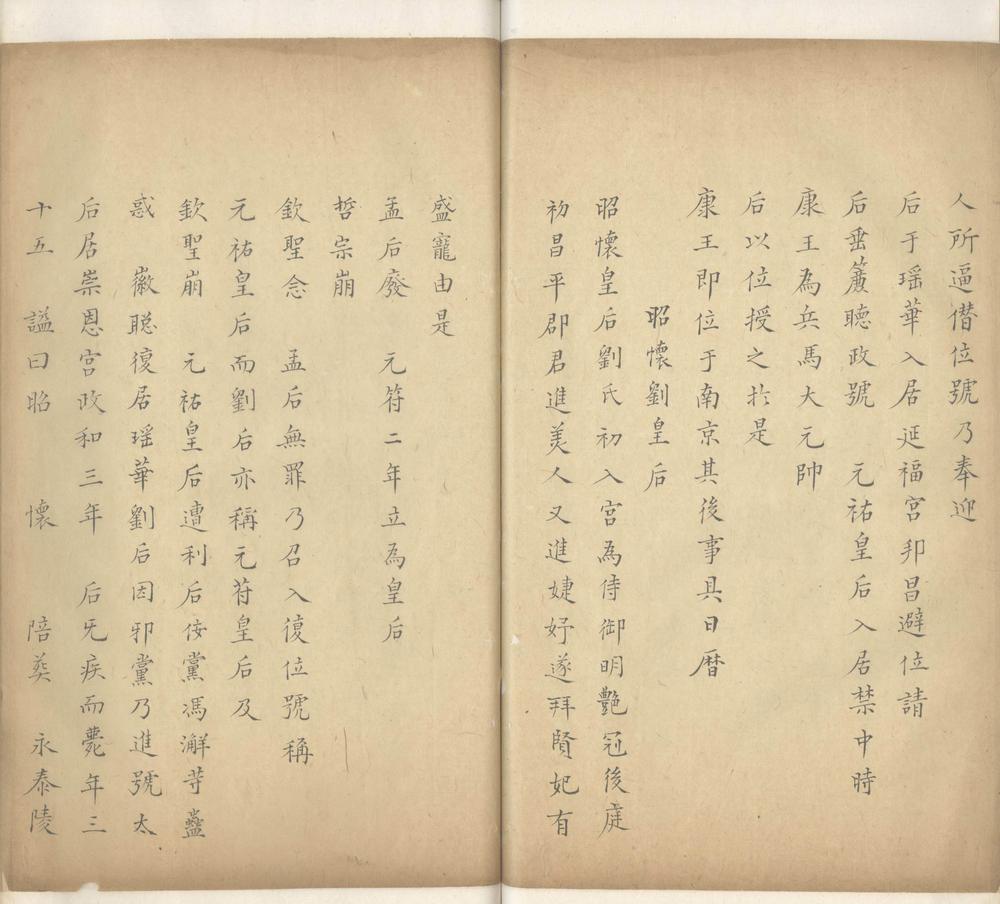 人所逼僭位號乃奉迎
后于瑶華入居延福宮邦昌避位請
后垂簾聽政號　元祐皇后入居禁中時
康王為兵馬大元帥
后以位授之扵是
康王即位于南京其後事具日暦
昭懷劉皇后
昭懷皇后劉氏初入宮為侍御明艷冠後庭
初昌平郡君進羙人又進婕妤遂拜賢妃有
盛寵由是
孟后廢　元符二年立為皇后
哲宗崩
欽聖念　孟后無罪乃召入復位號稱
元祐皇后而劉后亦稱元苻皇后及
欽聖崩　元祐皇后遭利后侫黨馮澥等蠱
惑　徽聡復居瑶華劉后因邪黨乃進號太
后居崇恩宮政和三年　后旡疾而薨年三
十五　謚曰昭　懷　陪葬　永泰陵